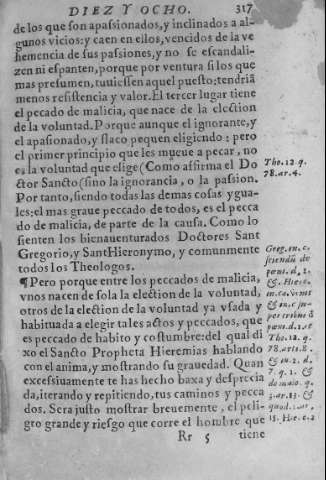 DIEZ Y OCHO. 317
de los que son apassionados, y inclinados a al-
gunos vicios: y caen en ellos, vencidos de la ve
hemencia de sus passiones, y no se escandali-
zen ni espanten, porque por ventura si los que
mas presumen, tuuiessen aquel puesto; tendriã
menos resistencia y valor. El tercer lugar tiene
el pecado de malicia, que nace de la election
de la voluntad. Porque aunque el ignorante, y
el apasionado, y flaco pequen eligiendo: pero
el primer principio que les mueue a pecar, no
es la voluntad que elige (Como affirma el Do
ctor Sancto) sino la ignorancia, o la passion.
Por tanto, siendo todas las demas cosas ygua-
les; el mas graue peccado de todos, es el pecca
do de malicia, de parte de la causa. Como lo
sienten los bienauenturados Doctores Sant
Gregorio, y Sant Hieronymo, y comunmente
todos los Theologos.
¶ Pero porque entre los peccados de malicia,
vnos nacen de sola la election de la voluntad,
otros de la election de la voluntad ya vsada y
habituada a elegir tales actos y peccados, que
es peccado de habito y costumbre: del qual di
xo el Sancto Propheta Hieremias hablando
con el anima, y mostrando su grauedad. Quan
excessiuamente te has hecho baxa y desprecia
da, iterando y repitiendo, tus caminos y pecca
dos. Sera justo mostrar breuemente, el peli-
gro grande y riesgo que corre el hombre que
Rr 5 tiene
Tho. 12. q.
78. ar. 4.
Greg. en. c.
& Hiero.
Tho. 12. q.
78. artic. 8.
& in. 2. d.
7. q. 1. &
de malo. q.
3. ar. 13. &
13. Hie. c. 2